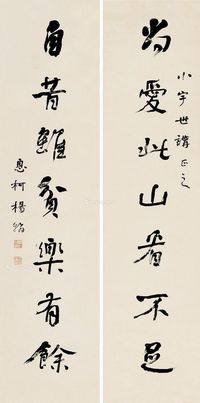 小宇世講正之
尚愛此山看不足
自昔雖貧樂有餘
惠柯楊